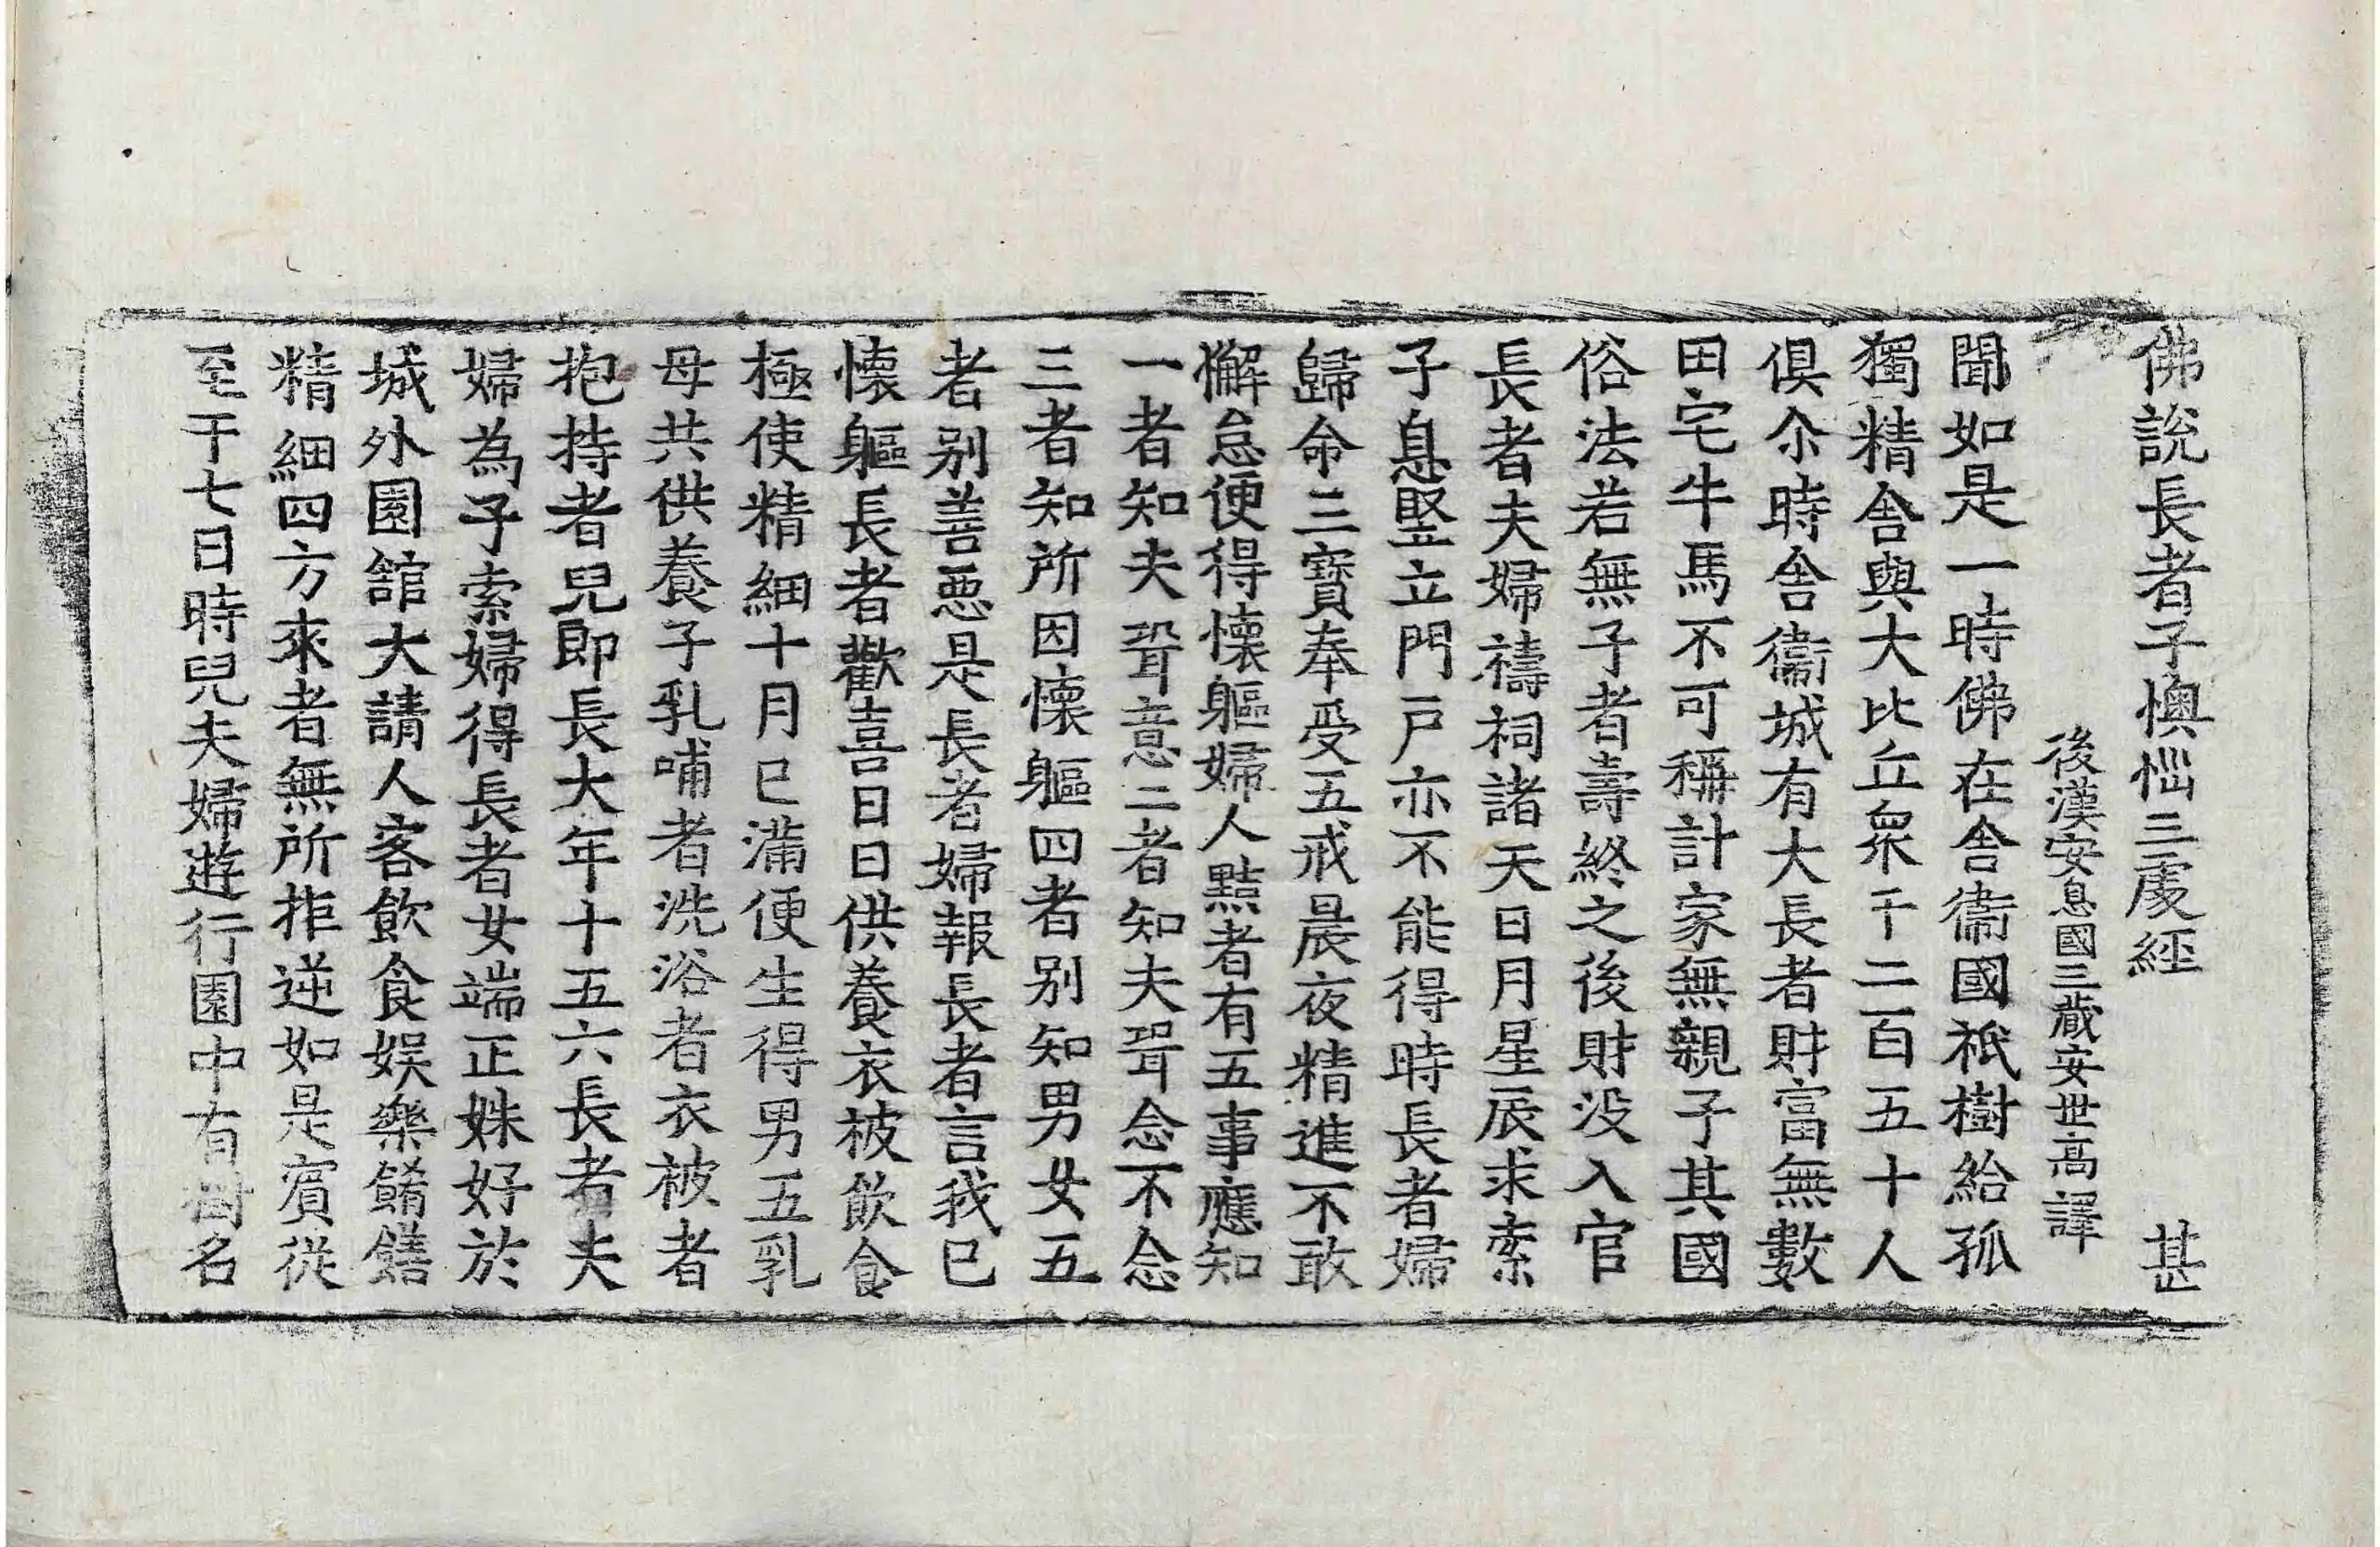 佛說長者子懊惱三處經 甚
後漢安息國三藏安世高譯
聞如是一時佛在舍衞國祇樹給孤
獨精舍與大比丘衆千二百五十人
俱尒時舍衞城有大長者財富無數
田宅牛馬不可稱計家無親子其國
俗法若無子者壽終之後財没入官
長者夫婦禱祠諸天日月星辰求索
子息竪立門戸亦不能得時長者婦
歸命三寶奉受五戒晨夜精進不敢
懈怠便得懷軀婦人黠者有五事應知
一者知夫壻意二者知夫壻念不念
三者知所因懷軀四者別知男女五
者別善惡是長者婦報長者言我已
懷軀長者歡喜日日供養衣被飮食
極使精細十月已滿便生得男五乳
母共供養子乳哺者洗浴者衣被者
抱持者兒即長大年十五六長者夫
婦為子索婦得長者女端正姝好於
城外園舘大請人客飮食娛樂餚饍
精細四方來者無所拒逆如是賓從
至于七日時兒夫婦遊行園中有樹名